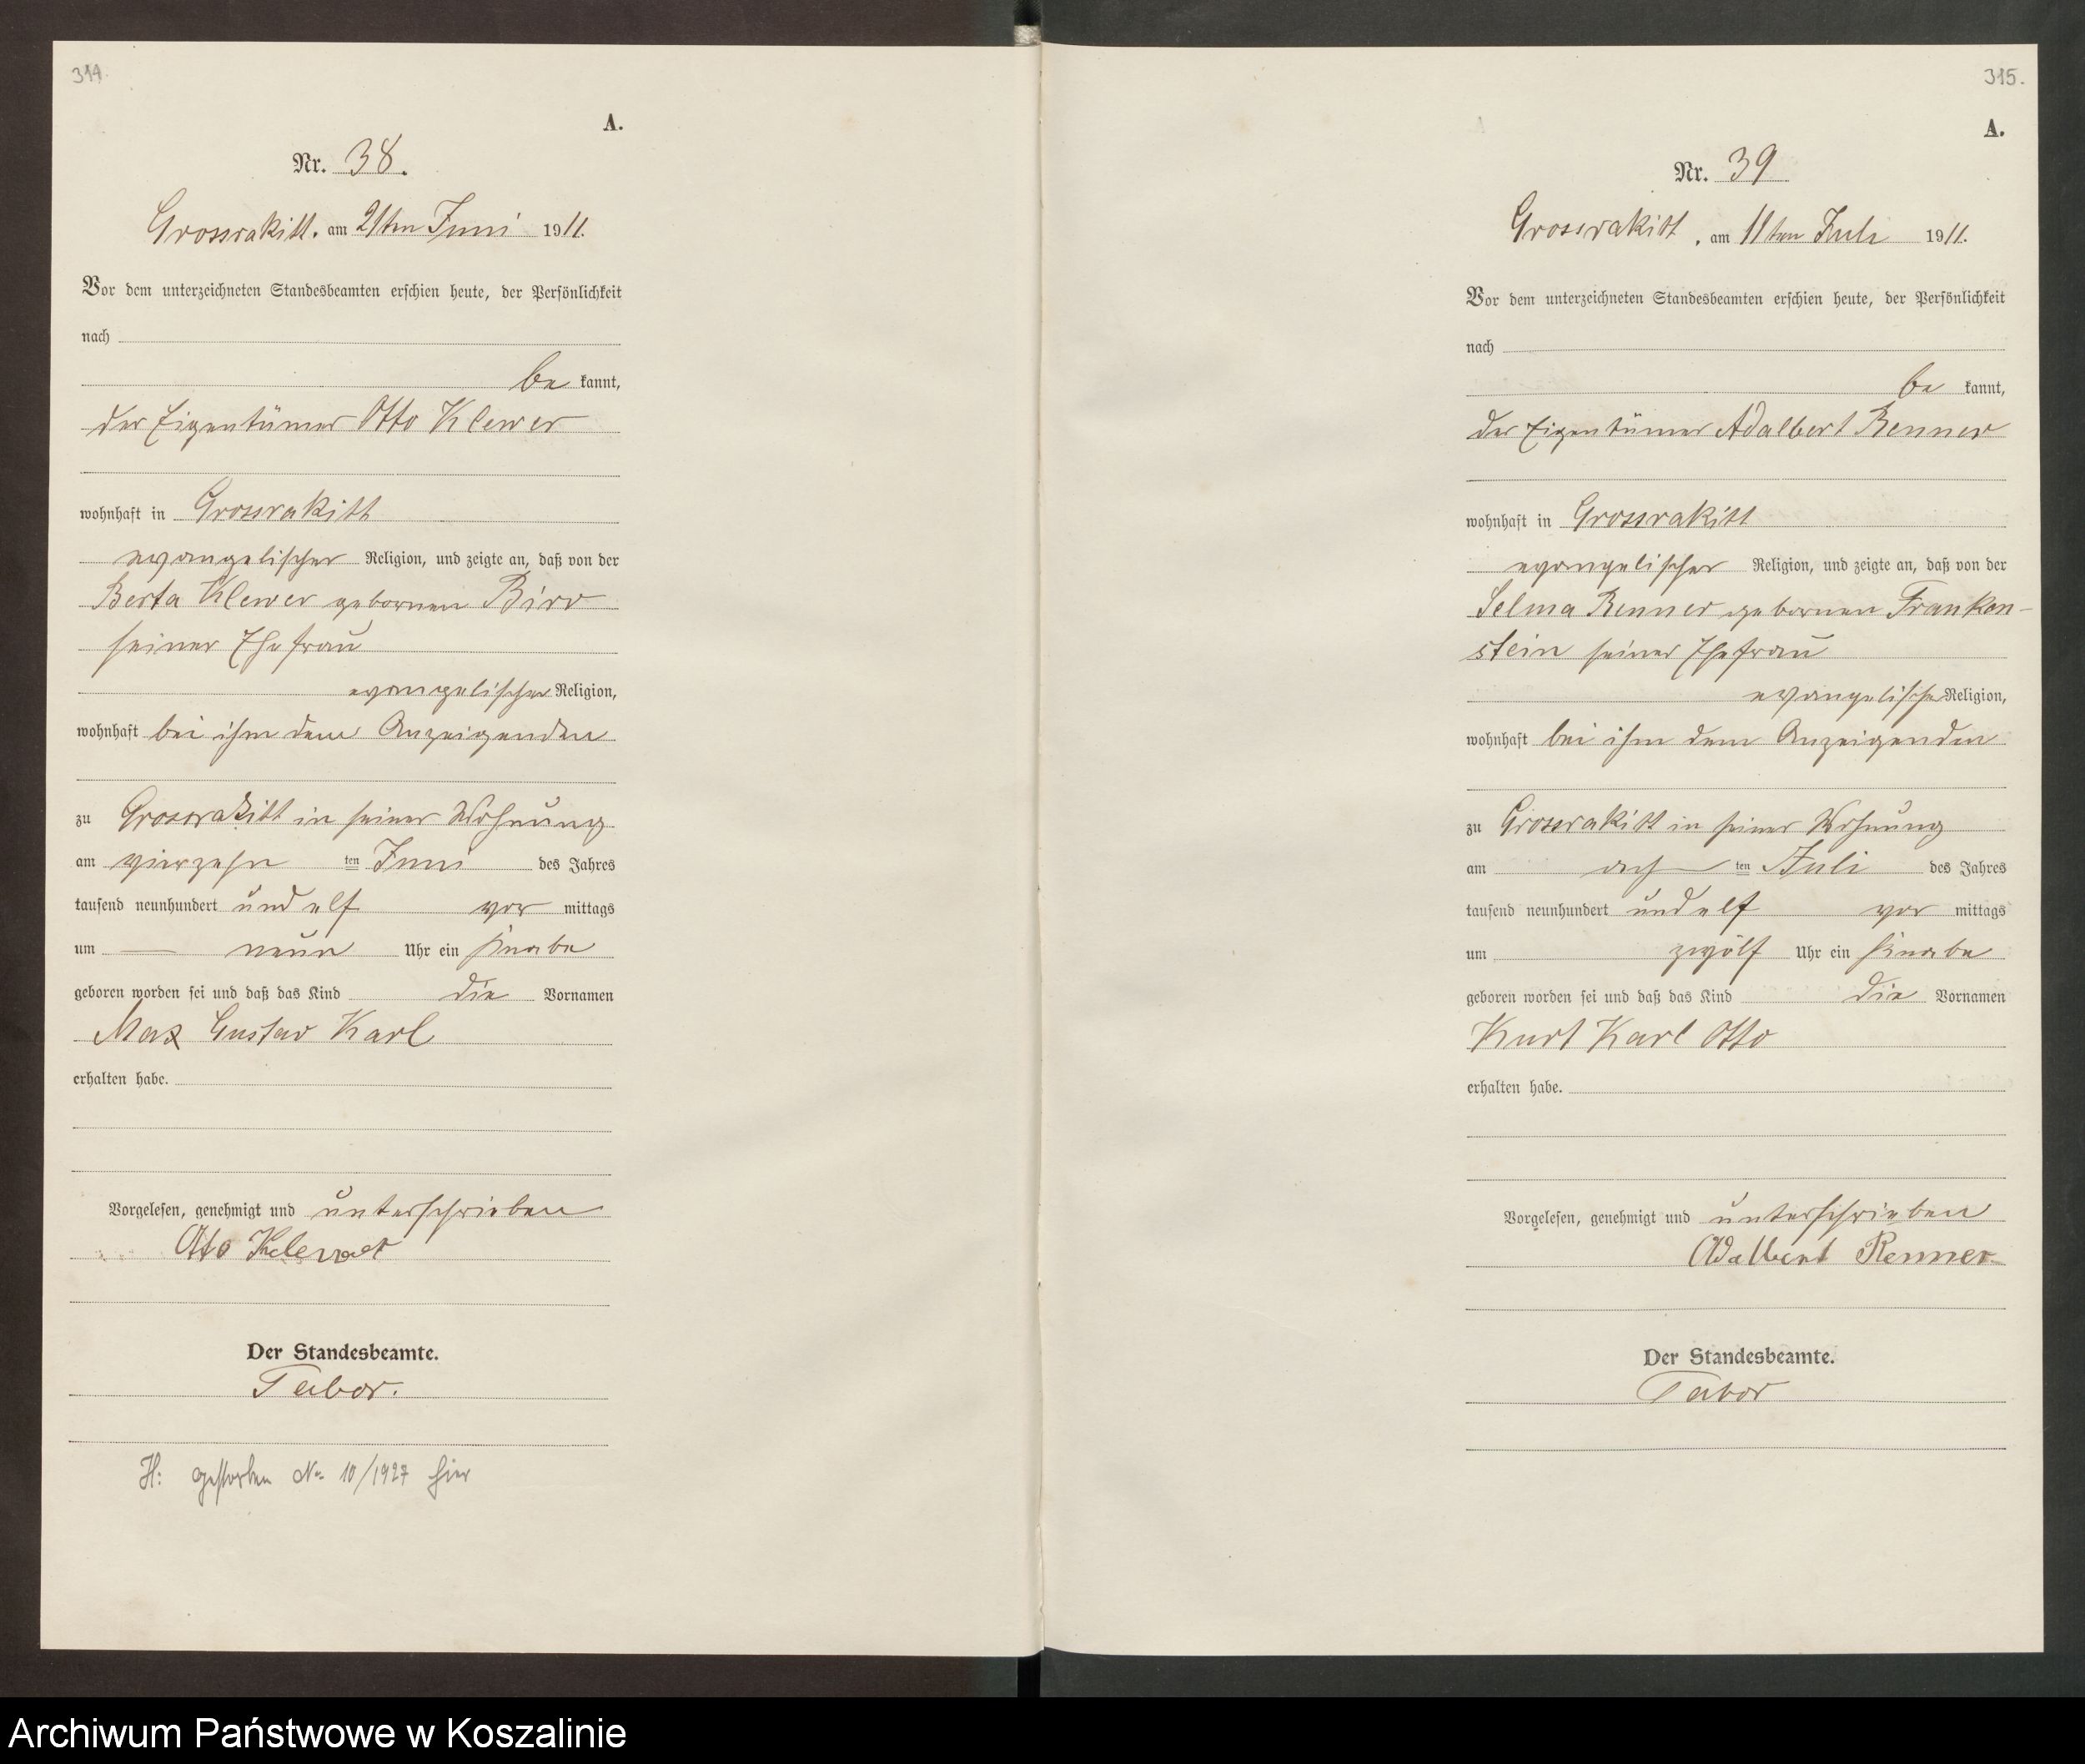 314.
A.
Nr. 38.
Grossrakitt. am 21ten Juni 1911.
Vor dem unterzeichneten Standesbeamten erschien heute, der Persönlichkeit
nach
be kannt,
der Eigentümer Otto Klewer
wohnhaft in Grossrakitt
evangelischer Religion, und zeigte an, daß von der
Berta Klewer gebornen Birr
seiner Ehefrau
evangelischer Religion,
wohnhaft bei ihm dem Anzeigenden
zu Grossrakitt in seiner Wohnung
am vierzehn ten Juni des Jahres
tausend neunhundert und elf vor mittags
um neun Uhr ein Knabe
geboren worden sei und daß das Kind die Vornamen
Max Gustav Karl
erhalten habe.
Vorgelesen, genehmigt und unterschrieben
Otto Klewer
Der Standesbeamte.
Tabor.
H: gestorben No 10/1927 hier
315.
A.
Nr. 39
Grossrakitt, am 11ten Juli 1911.
Vor dem unterzeichneten Standesbeamten erschien heute, der Persönlichkeit
nach
be kannt,
der Eigentümer Adalbert Renner
wohnhaft in Grossrakitt
evangelischer Religion, und zeigte an, daß von der
Selma Renner gebornen Franken-
stein seiner Ehefrau
evangelischer Religion,
wohnhaft bei ihm dem Anzeigenden
zu Grossrakitt in seiner Wohnung
am ach ten Juli des Jahres
tausend neunhundert und elf vor mittags
um zwölf Uhr ein Knabe
geboren worden sei und daß das Kind die Vornamen
Kurt Karl Otto
erhalten habe.
Vorgelesen, genehmigt und unterschrieben
Adalbert Renner
Der Standesbeamte.
Tabor
Archiwum Państwowe w Koszalinie